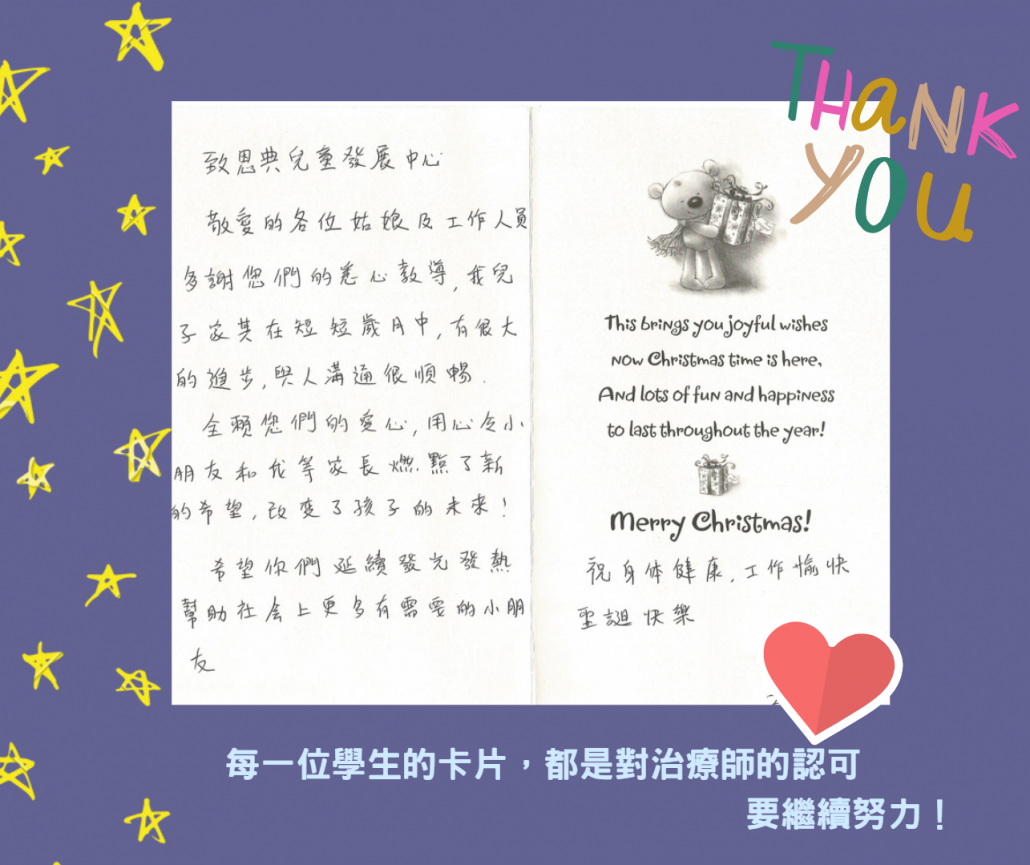 THANK
YOU
致恩典兒童發展中心
敬愛的各位姑娘及工作人員
多謝您們的悉心教導,我兒
子家其在短短歲月中,有很大
的進步,與人溝通很順暢.
全賴您們的愛心,用心令小
朋友和我等家長燃點了新
的希望,改變了孩子的未來!
希望你們延續發光發熱
幫助社会上更多有需要的小朋
友
This brings you joyful wishes
now Christmas time is here,
And lots of fun and happiness
to last throughout the year!
Merry Christmas!
祝身体健康,工作愉快
聖誕快樂
每一位學生的卡片，都是對治療師的認可
要繼續努力！